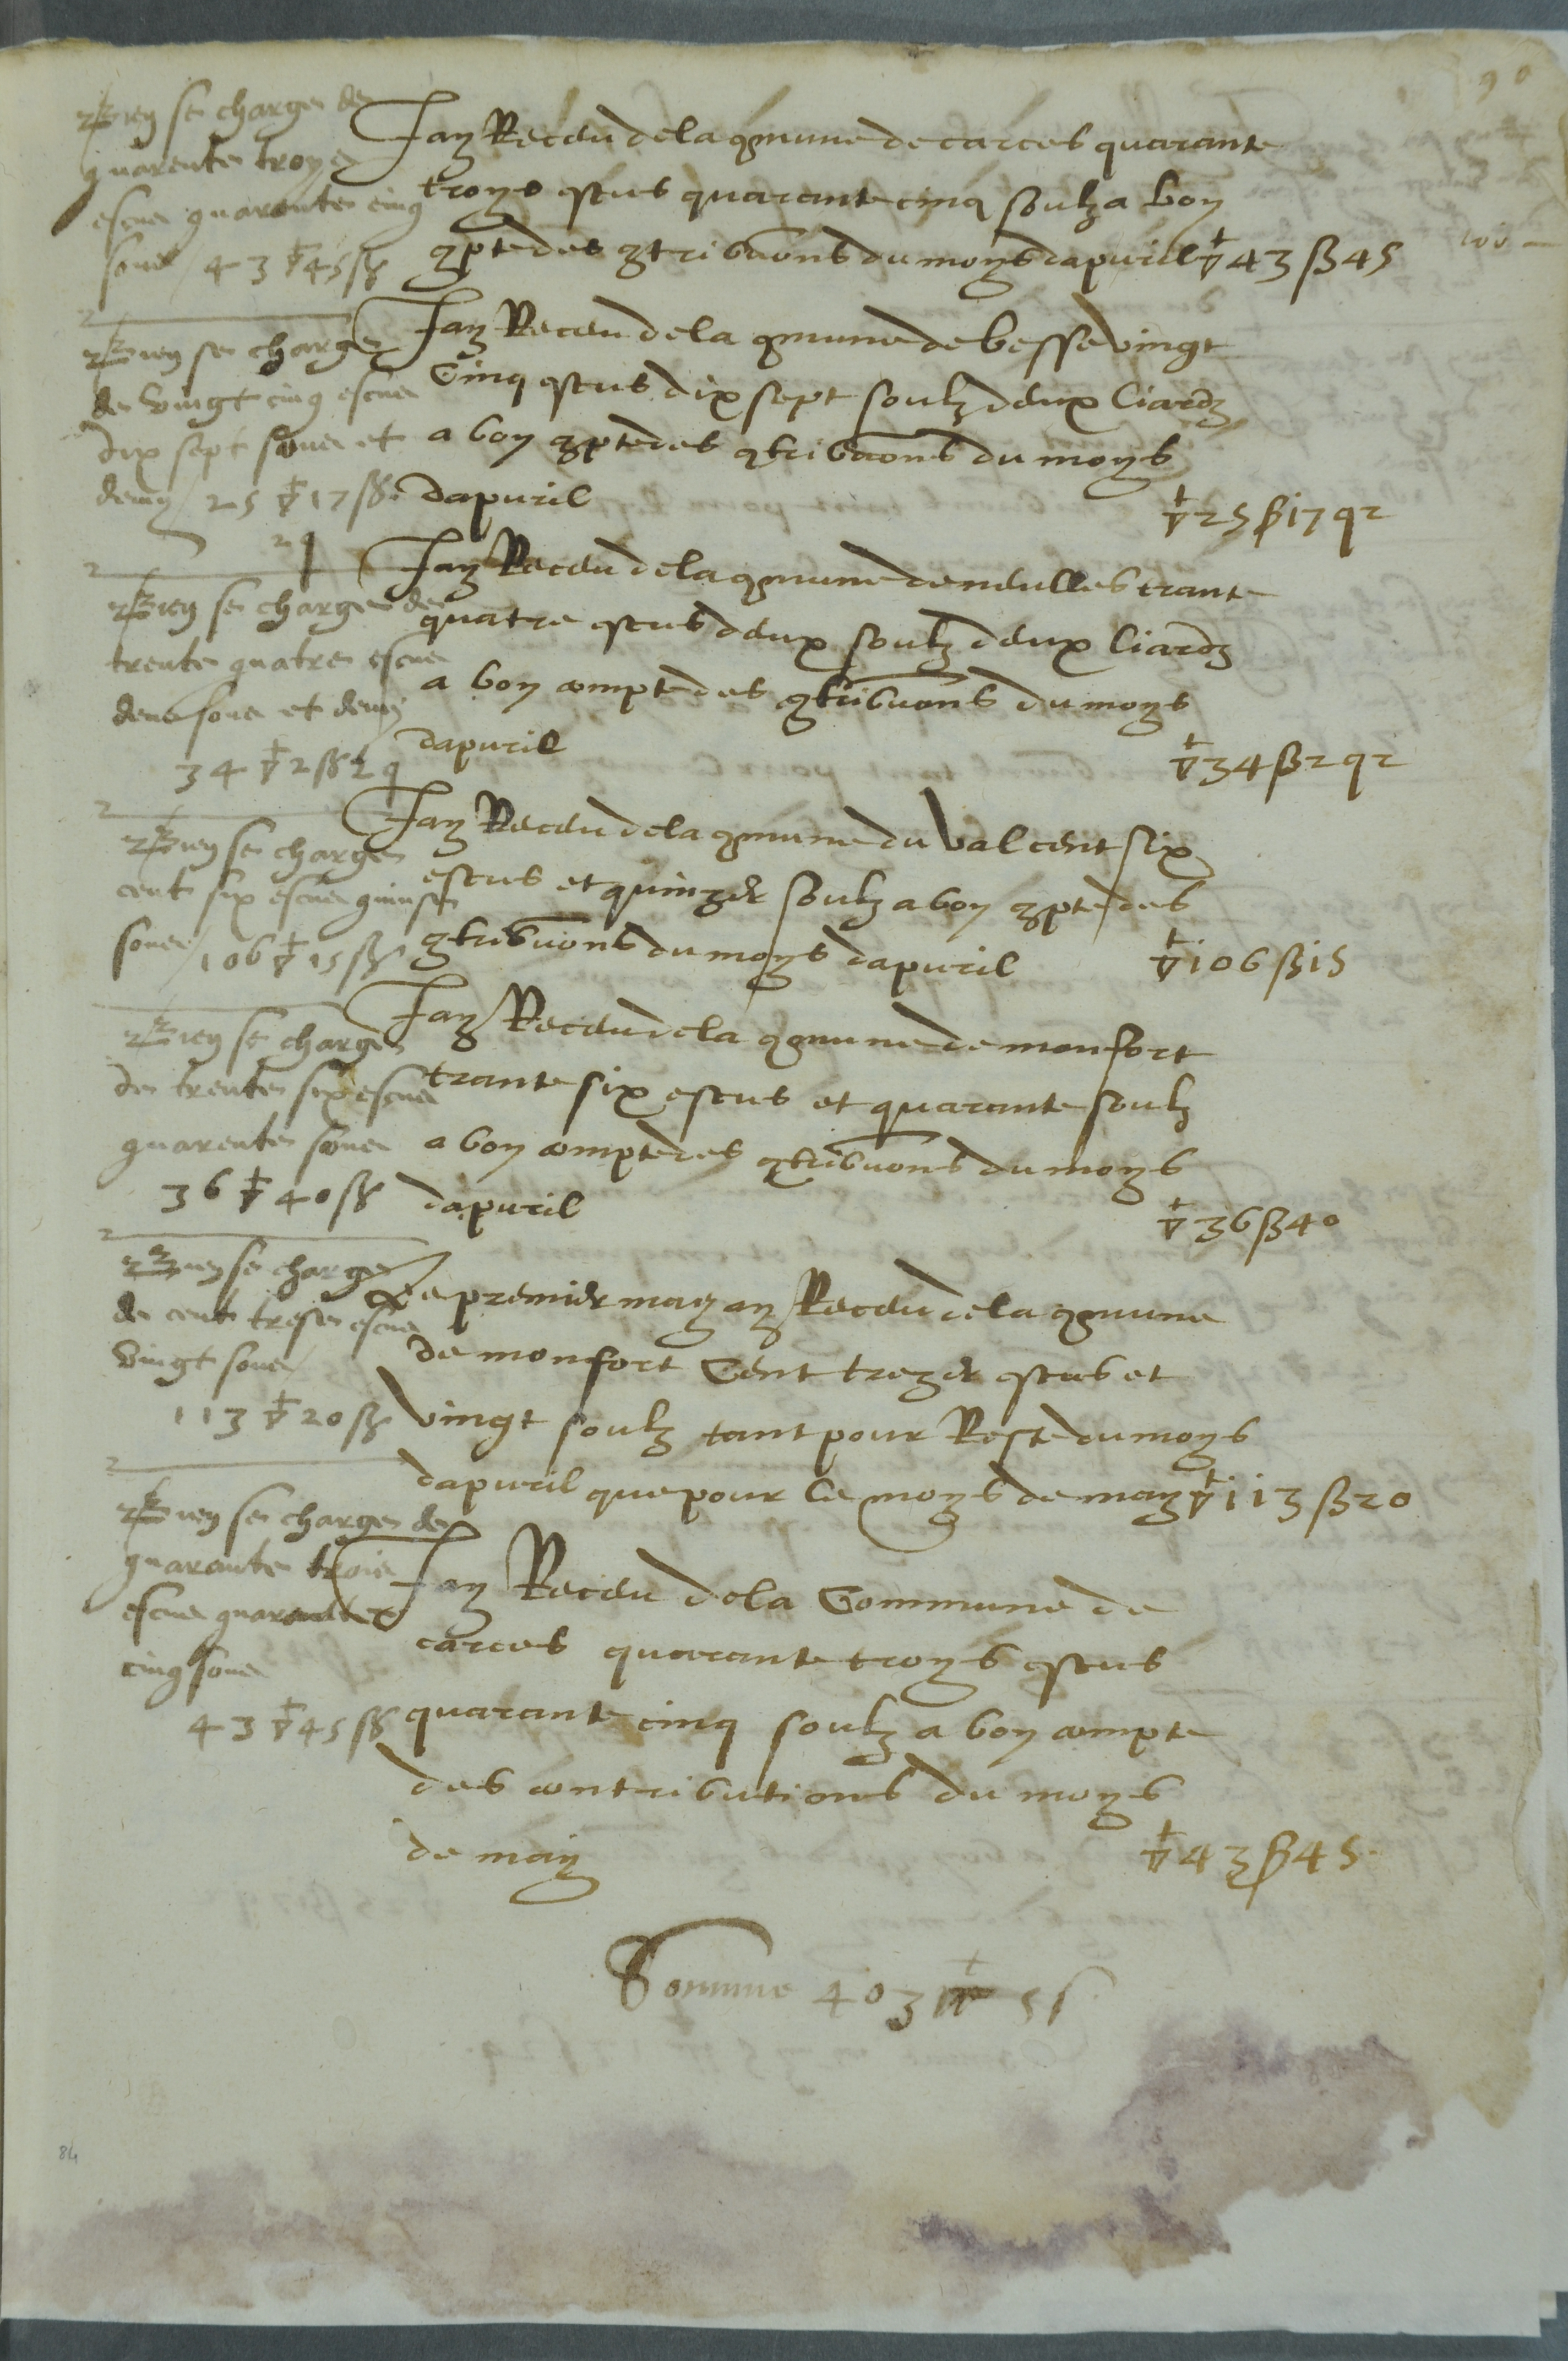 90
Jay Receu de la commune de carces quarante
troys escus quarante cinq soulz a bon
compte des contribuons du moys dapvril ▽ 43 ß 45
se charge de
quarente troys
escus quarante cinq
sous / 43 ▽ 45 ß
Jay Receu de la commune de besse vingt
Cinq escus dix sept soulz deux liardz
a bon compte des contribuons du moys
dapvril ▽ 25 ß 17 q 2
se charge
de vingt cinq escus
dix sept sous et
demy / 25 ▽ 17 ß
2 q
Jay Receu de la commune de neulles trante
quatre escus deux soulz deux liardz
a bon compte des contribuons du moys
dapvril ▽ 34 ß 2 q 2
se charge de
trente quatre escus
deus sous et demy
34 ▽ 2 ß 2 q
Jay Receu de la commune du val cent six
escus et quinze soulz a bon compte des
contribuons du moys dapvril ▽ 106 ß 15
se charge
cent six escus quinse
sous / 106 ▽ 15 ß
Jay Receu de la commune de monfort
trante six escus et quarante soulz
a bon compte des contribuons du moys
dapvril ▽ 36 ß 40
se charge
de trente six escus
quarente sous
36 ▽ 40 ß
Le premier may ay Receu de la commune
de monfort Cent treze escus et
vingt soulz tant pour Reste du moys
dapvril que pour le moys de may ▽ 113 ß 20
se charge
de cent trese escus
vingt sous
113 ▽ 20 ß
Jay Receu de la Commune de
carces quarante troys escus
quarante cinq soulz a bon compte
des contributions du moys
de may ▽ 43 ß 45
se charge de
quarante trois
escus quarante
cinq sous
43 ▽ 45 ß
Somme 403 ▽
84